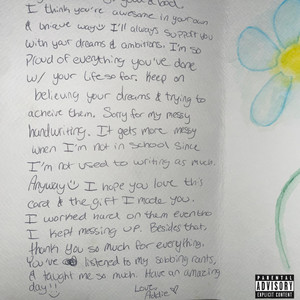 good & bad.
I think you're awesome in your own
& unique way☺ I'll always support you
with your dreams & ambitions. I'm so
proud of everything you've done
w/ your life so far. Keep on
believing your dreams & trying to
acheive them. Sorry for my messy
handwriting. It gets more messy
when I'm not in school since
I'm not used to writing as much.
Anyway☺ I hope you love this
card & the gift I made you.
I worked hard on them eventho
I kept messing up. Besides that,
thank you so much for everything.
You've listened to my sobbing rants,
& taught me so much. Have an amazing
day☺!
Love,
Addie ♡
PARENTAL
ADVISORY
EXPLICIT CONTENT